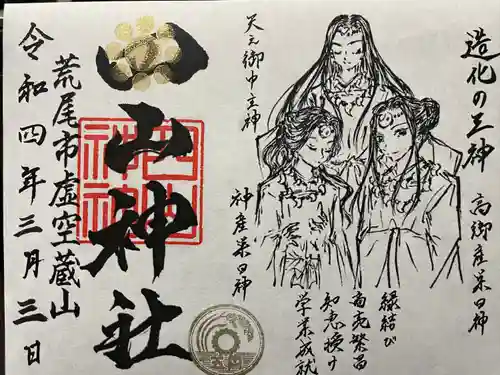 造化の三神
高御産巣日神
天之御中主神
神産巣日神
縁結び
商売繁昌
知恵授け
学業成就
四山神社
四山
神社
荒尾市虚空蔵山
令和四年三月三日